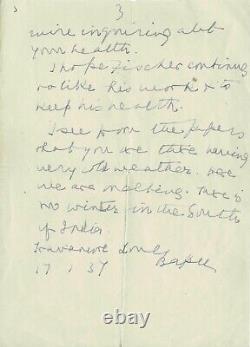 3
wire inquiring abt
your health.
I hope Fischer continues
to like his work & to
keep his health.
I see from the papers
that you are there having
very cold weather. Here
we are melting. There's
no winter in the South
of India.
Travancore Love
17 1 37 Bapu